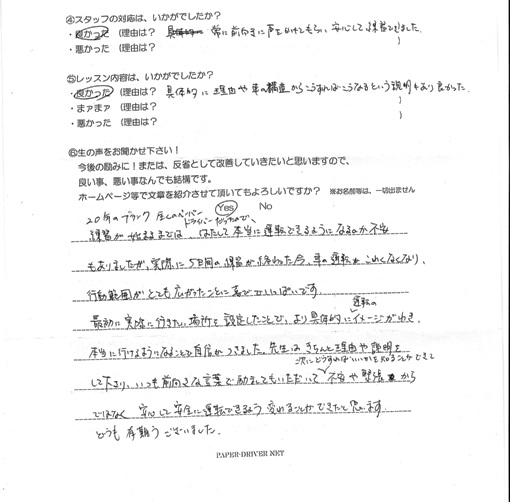 ④スタッフの対応は、いかがでしたか？
・良かった （理由は？ 常に前向きに声をかけてもらい 安心して練習できました。 ）
・悪かった （理由は？ ）
⑤レッスン内容は、いかがでしたか？
・良かった （理由は？ 具体的に理由や車の構造からこうすればこうなるという説明もあり良かった。 ）
・まァまァ （理由は？ ）
・悪かった （理由は？ ）
⑥生の声をお聞かせ下さい！
今後の励みに！または、反省として改善していきたいと思いますので、
良い事、悪い事なんでも結構です。
ホームページ等で文章を紹介させて頂いてもよろしいですか？ ※お名前等は、一切出ません
Yes No
20年のブランク ペーパードライバーだったので、
練習が始まるまでは、はたして本当に運転できるようになるのか不安
もありましたが、実際に5日間の練習が終わった今、車の運転もこわくなくなり、
行動範囲がとても広がったことに喜びでいっぱいです。
最初に実際に行きたい場所を設定したことで、より具体的に運転のイメージがわき
本当に行けるようになることで自信がつきました。先生はきちんと理由や説明を
して下さり、いつも前向きな言葉で励ましてもいただいて 次にどうすればいいかを知ることができて 不安や緊張から
ではなく 安心して安全に運転できるよう 変わることができたと思います。
どうも有難うございました。
PAPER-DRIVER NET